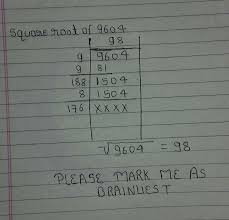 Square root of 9604
98
9 9604
9 81
188 1504
8 1504
176 XXXX
√9604 = 98
PLEASE MARK ME AS
BRAINLIEST